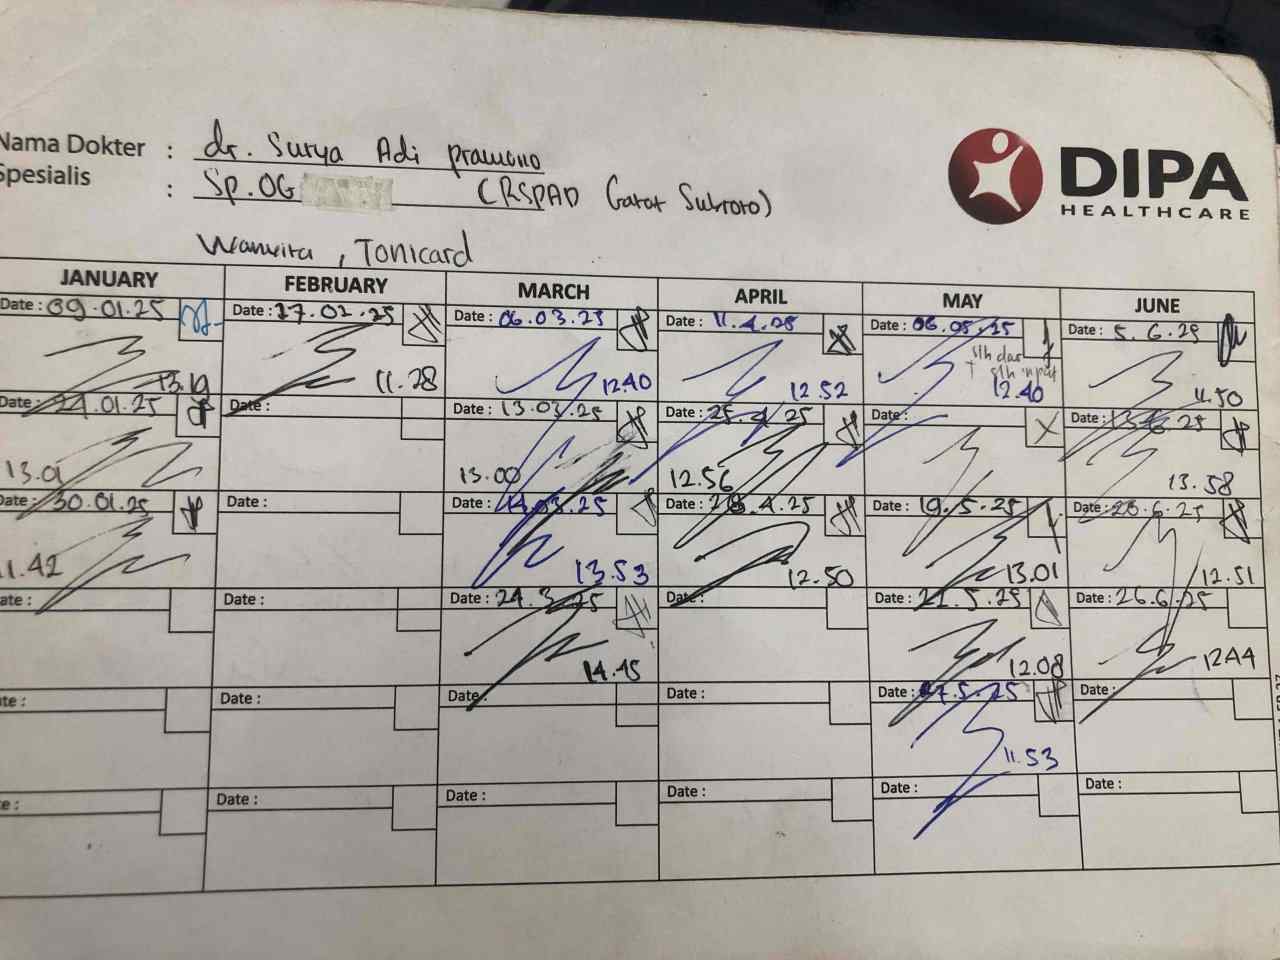 Nama Dokter : dr. Surya Adi Pramono
Spesialis : Sp.OG (RSPAD Gatot Subroto)
DIPA
HEALTHCARE
Tonicard
JANUARY FEBRUARY MARCH APRIL MAY JUNE
Date : 09.01.25 Date : 17.02.25 Date : 06.03.25 Date : 11.4.25 Date : 06.05.25 Date : 5.6.25
13.19 11.28 12.40 12.52 12.40 11.50
Date : 24.01.25 Date : Date : 13.03.25 Date : 25.4.25 Date : Date : 13.6.25
13.01 13.00 12.56 13.58
Date : 30.01.25 Date : Date : 14.03.25 Date : 28.4.25 Date : 19.5.25 Date : 20.6.25
11.42 13.53 12.50 13.01 12.51
Date : Date : Date : 24.3.25 Date : Date : 21.5.25 Date : 26.6.25
14.45 12.08 12.44
Date : Date : Date : Date : Date : 27.5.25 Date :
11.53
Date : Date : Date : Date : Date : Date :